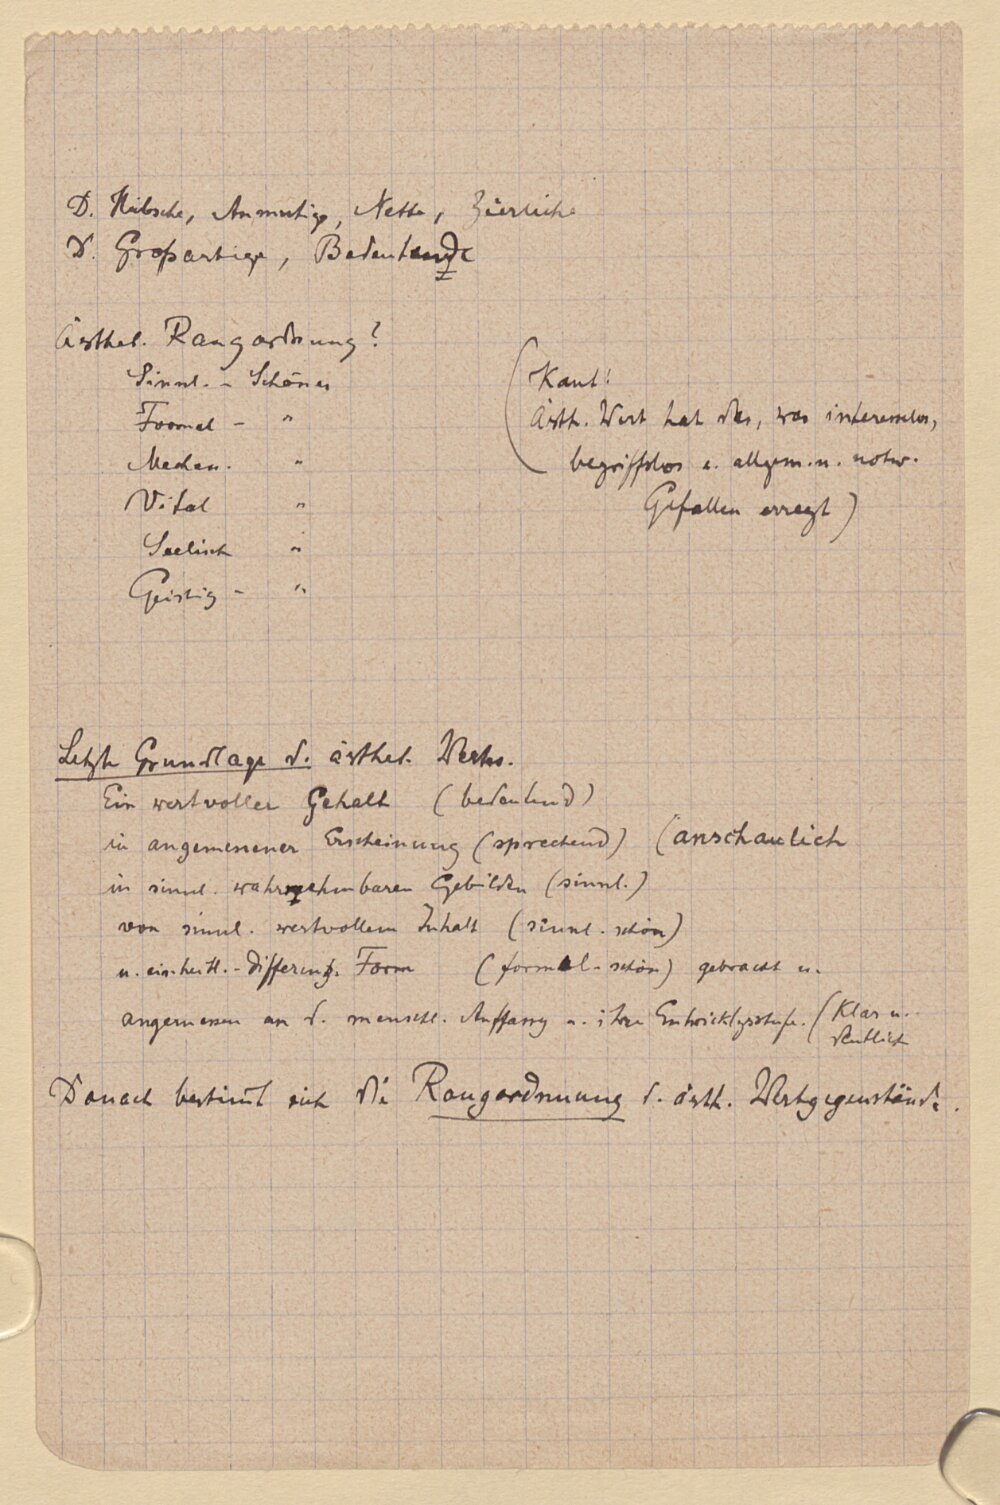 D. Hübsche, Anmutige, Nette, Zierliche
D. Großartige, Bedeutende
Ästhet. Rangordnung?
Sinnl. - Schönes
Formal - "
Mechan. "
Vital "
Seelisch "
Geistig - "
(Kant:
Ästh. Wert hat das, was interesselos,
begriffslos u. allgem. u. notw.
Gefallen erregt)
Letzte Grundlage d. ästhet. Wertes.
Ein wertvoller Gehalt (bedeutend)
in angemessener Erscheinung (sprechend) (anschaulich
in sinnl. wahrnehmbaren Gebilden (sinnl.)
von sinnl. wertvollem Inhalt (sinnl. - schön)
u. einheitl. - differenz. Form (formal - schön) gebracht u.
angemessen an d. menschl. Auffassg u. ihre Entwicklgsstufe. (Klar u.
deutlich
Danach bestimt sich die Rangordnung d. ästh. Wertgegenstände.